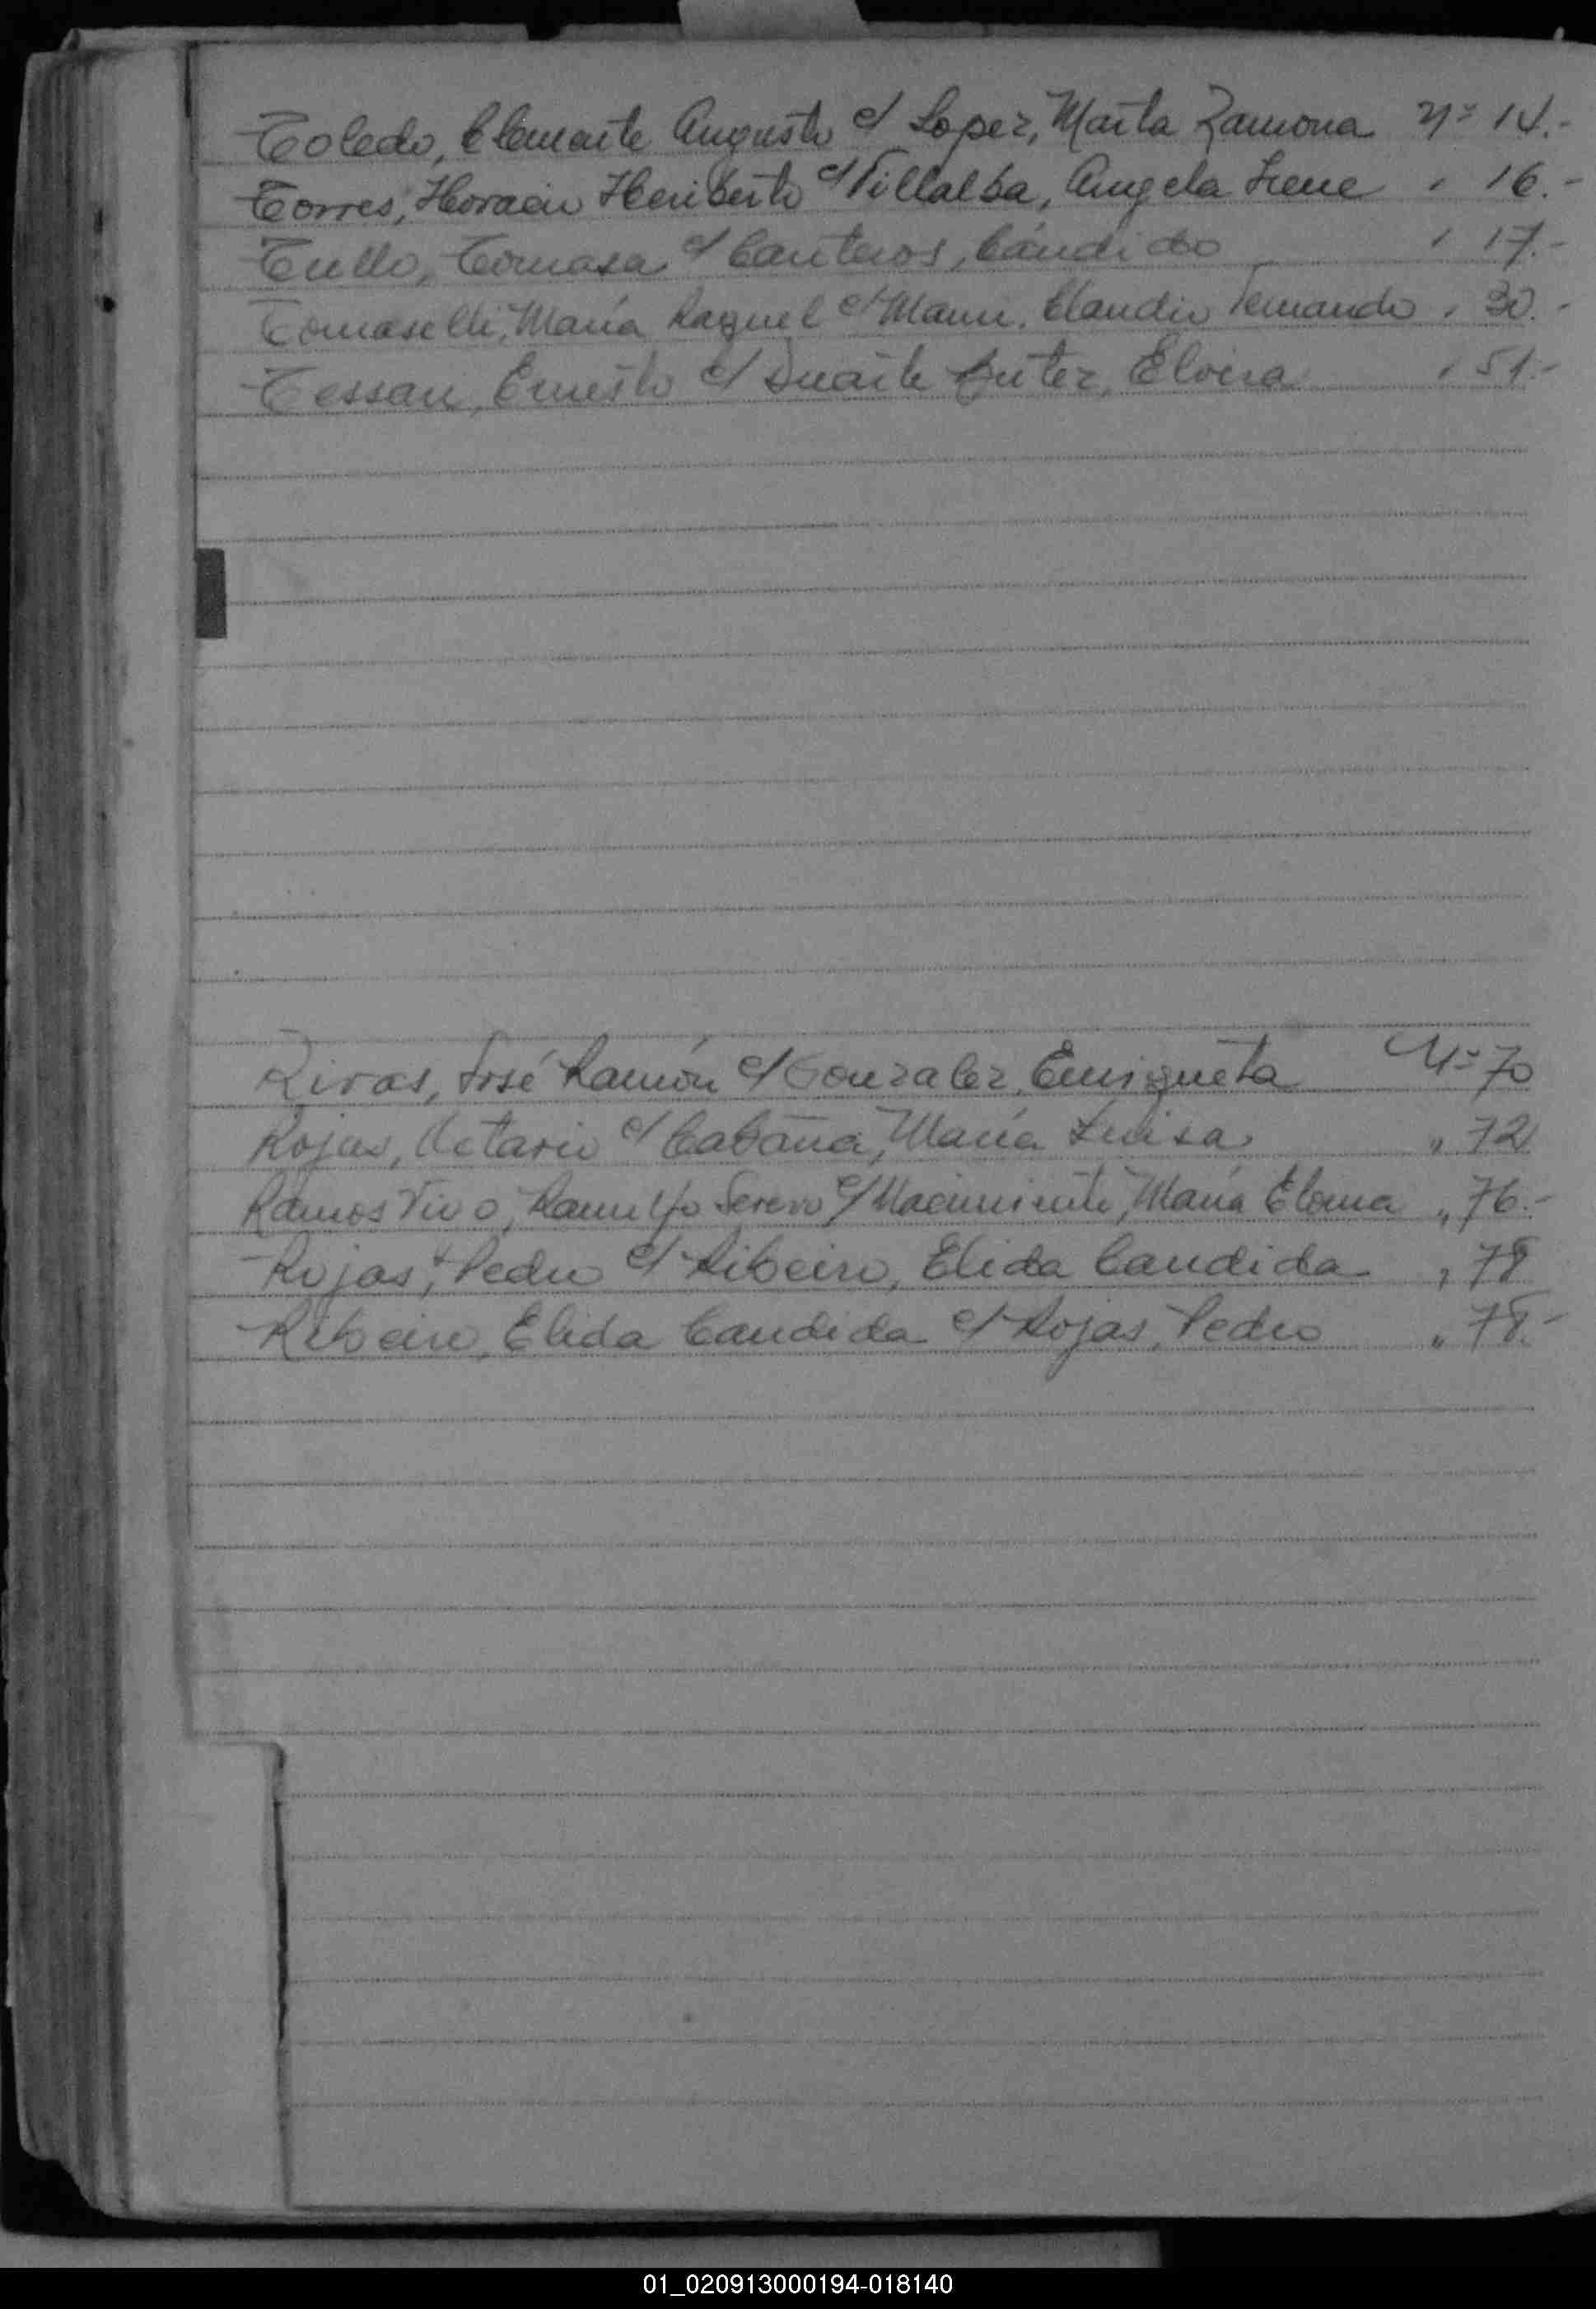 Toledo, Clemente Augusto c/ Lopez, Marta Ramona Nº 14.-
Torres, Horacio Heriberto c/ Villalba, Angela Irene " 16.-
Tullo, Tomasa c/ Canteros, Cándido " 17.-
Tomaselli, María Raquel c/ Claudio Fernando " 30.-
Tessari, Ernesto c/ Duarte Elvira " 51.-
Rivas, José Ramón c/ Gonzalez, Enriqueta Nº 70
Rojas, Octavio c/ Cabaña, María Luisa " 72
Ramos Vivo, c/ María " 76.-
Rojas, Pedro c/ Ribeiro, Elida Candida " 78
Ribeiro, Elida Candida c/ Rojas, Pedro " 78.-
01_020913000194-018140